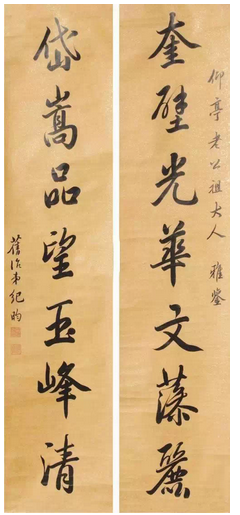 仰亭老公祖大人雅鉴
奎壁光華文藻麗
岱嵩品望玉峰清
舊治弟紀昀